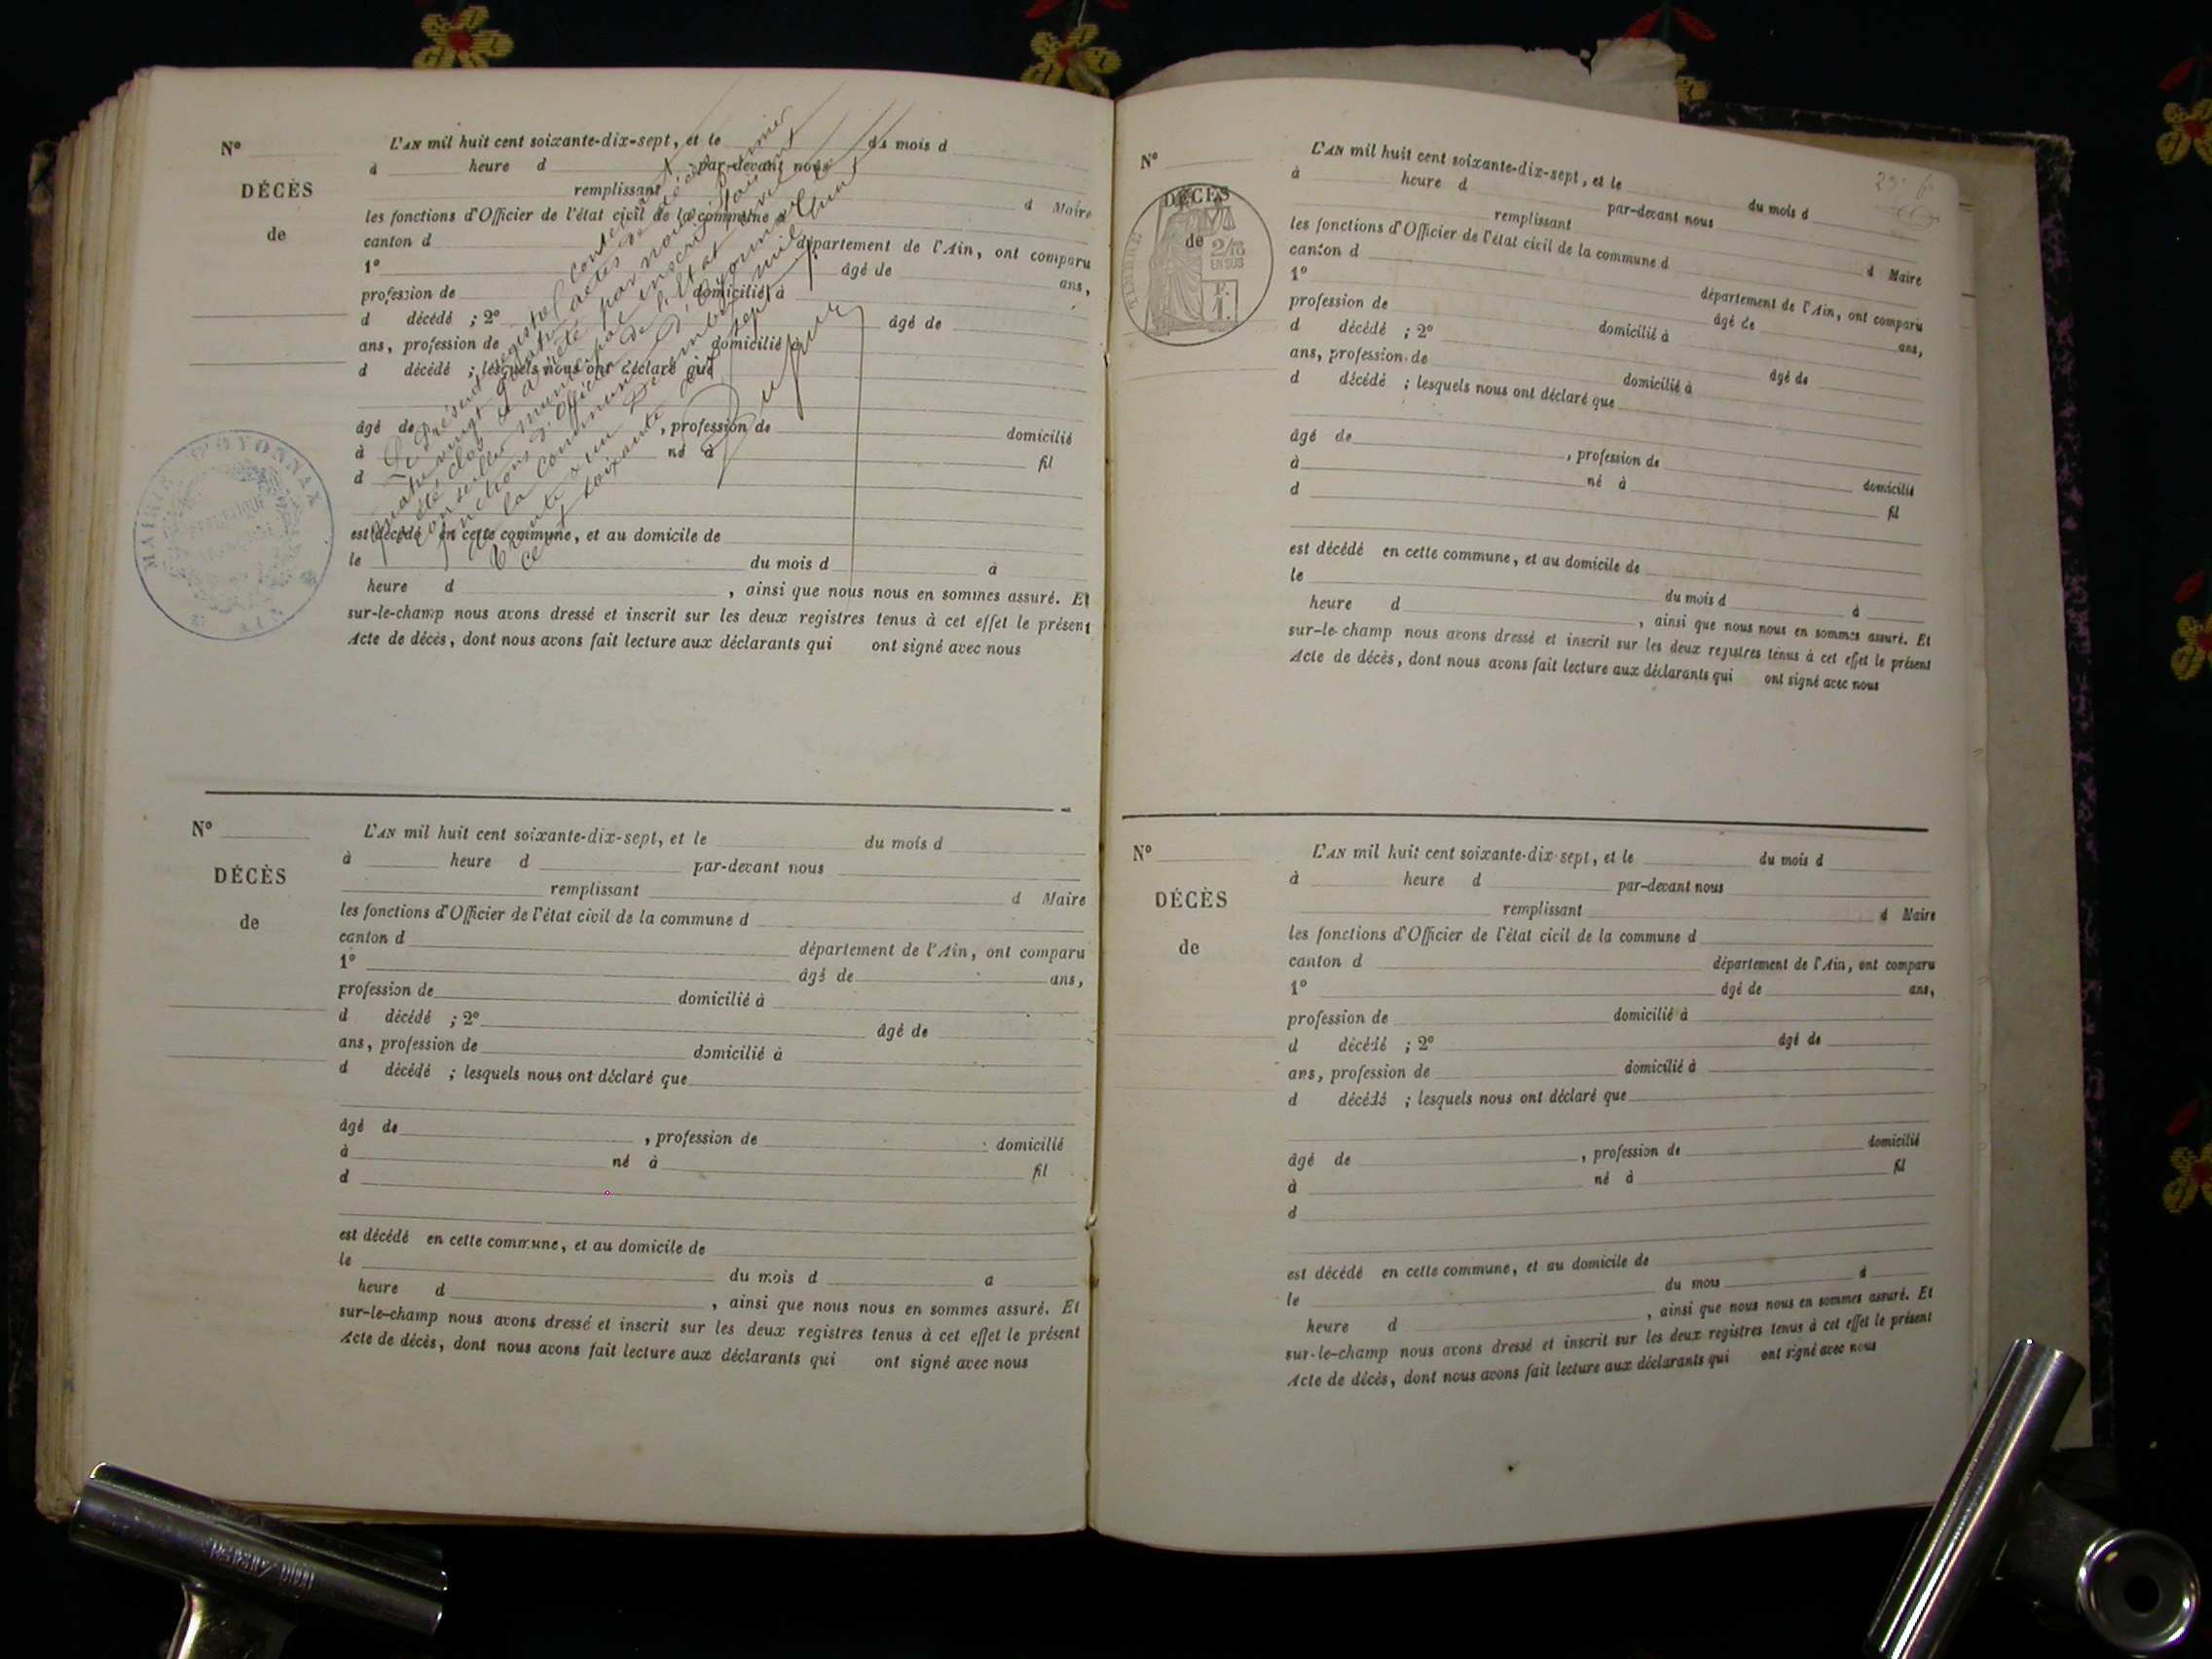 N°
DÉCÈS
de
L'AN mil huit cent soixante-dix-sept, et le du mois d
à heure d par-devant nous
remplissant d Maire
les fonctions d'Officier de l'état civil de la commune d
canton d département de l'Ain, ont comparu
1° âgé de ans,
profession de domicilié à
d décédé ; 2° âgé de
ans, profession de domicilié à
d décédé ; lesquels nous ont déclaré que
âgé de , profession de domicilié
à né à fil
d
est décédé en cette commune, et au domicile de
le du mois d à
heure d , ainsi que nous nous en sommes assuré. Et
sur-le-champ nous avons dressé et inscrit sur les deux registres tenus à cet effet le présent
Acte de décès, dont nous avons fait lecture aux déclarants qui ont signé avec nous
Le présent registre contenant
quatre vingt actes de décès
été clos et arrêté par nous
conseiller municipal inscrit
fonctions d'officier de l'état civil
de la commune d'Oyonnax
trente un Décembre mil
cent soixante dix sept
MAIRIE D'OYONNAX
AIN
N°
DÉCÈS
de
L'AN mil huit cent soixante-dix-sept, et le du mois d
à heure d par-devant nous
remplissant d Maire
les fonctions d'Officier de l'état civil de la commune d
canton d département de l'Ain, ont comparu
1° âgé de ans,
profession de domicilié à
d décédé ; 2° âgé de
ans, profession de domicilié à
d décédé ; lesquels nous ont déclaré que
âgé de , profession de domicilié
à né à fil
d
est décédé en cette commune, et au domicile de
le du mois d a
heure d , ainsi que nous nous en sommes assuré. Et
sur-le-champ nous avons dressé et inscrit sur les deux registres tenus à cet effet le présent
Acte de décès, dont nous avons fait lecture aux déclarants qui ont signé avec nous
N°
DÉCÈS
de
2/10
EN SUS
F.
1.
L'AN mil huit cent soixante-dix-sept, et le du mois d
à heure d par-devant nous
remplissant d Maire
les fonctions d'Officier de l'état civil de la commune d
canton d département de l'Ain, ont comparu
1° âgé de ans,
profession de domicilié à
d décédé ; 2° âgé de
ans, profession de domicilié à
d décédé ; lesquels nous ont déclaré que
âgé de , profession de domicilié
à né à fil
d
est décédé en cette commune, et au domicile de
le du mois d à
heure d , ainsi que nous nous en sommes assuré. Et
sur-le-champ nous avons dressé et inscrit sur les deux registres tenus à cet effet le présent
Acte de décès, dont nous avons fait lecture aux déclarants qui ont signé avec nous
N°
DÉCÈS
de
L'AN mil huit cent soixante-dix-sept, et le du mois d
à heure d par-devant nous
remplissant d Maire
les fonctions d'Officier de l'état civil de la commune d
canton d département de l'Ain, ont comparu
1° âgé de ans,
profession de domicilié à
d décédé ; 2° âgé de
ans, profession de domicilié à
d décédé ; lesquels nous ont déclaré que
âgé de , profession de domicilié
à né à fil
d
est décédé en cette commune, et au domicile de
le du mois à
heure d , ainsi que nous nous en sommes assuré. Et
sur-le-champ nous avons dressé et inscrit sur les deux registres tenus à cet effet le présent
Acte de décès, dont nous avons fait lecture aux déclarants qui ont signé avec nous